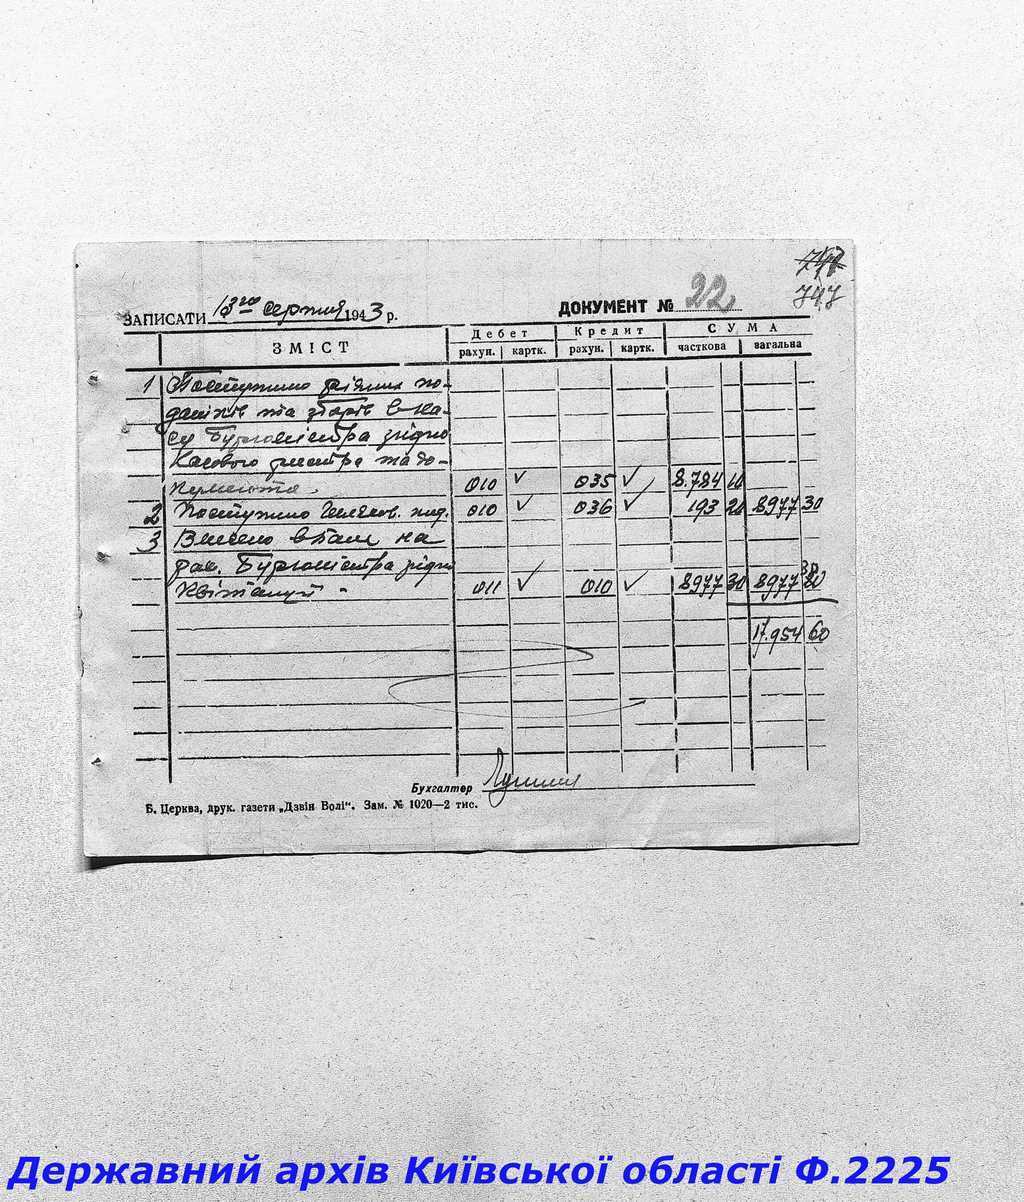 747
747
ЗАПИСАТИ 13го серпня 1943 р. ДОКУМЕНТ № 22
ЗМІСТ Дебет Кредит СУМА
рахун. картк. рахун. картк. часткова загальна
1 Поступило різних по-
датків та зборів в ка-
су Бургомістра згідно
Касового реєстра та до-
кумента. 010 ✓ 035 ✓ 8.784 10
2 Поступило под. 010 ✓ 036 ✓ 193 20 8977 30
3 Внесено в банк на
рах. Бургомістра згідно
Квітанції 011 ✓ 010 ✓ 8977 30 8977 30
17.954 60
Бухгалтер
Б. Церква, друк. газети „Дзвін Волі“. Зам. № 1020—2 тис.
Державний архів Київської області Ф.2225